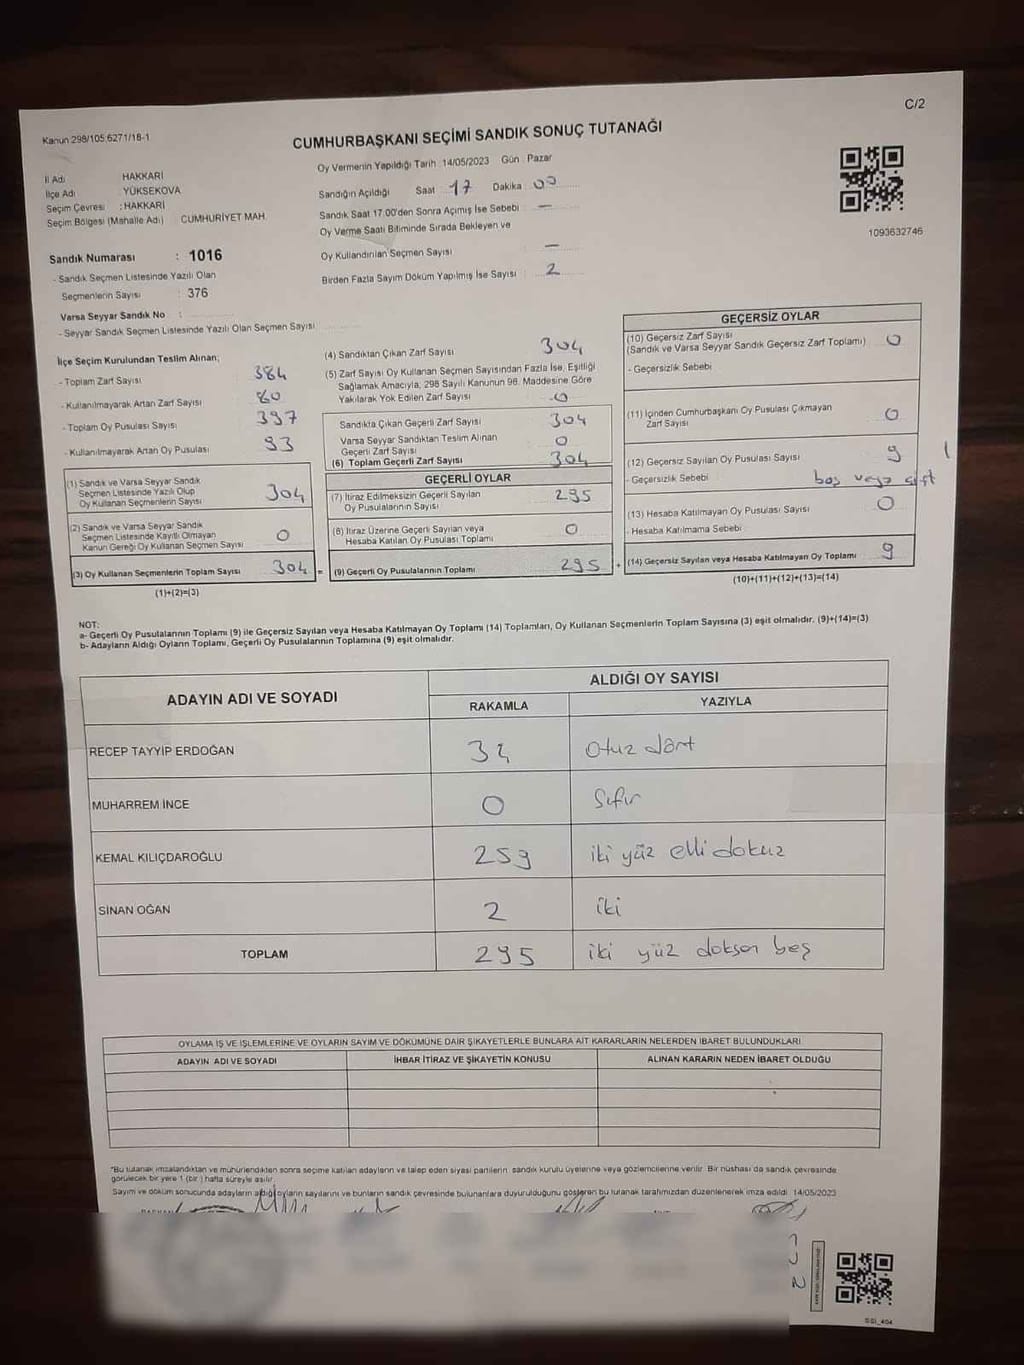 C/2
Kanun 298/105,6271/18-1
CUMHURBAŞKANI SEÇİMİ SANDIK SONUÇ TUTANAĞI
İl Adı HAKKARİ
İlçe Adı : YÜKSEKOVA
Seçim Çevresi : HAKKARİ
Seçim Bölgesi (Mahalle Adı) CUMHURİYET MAH.
Sandık Numarası : 1016
- Sandık Seçmen Listesinde Yazılı Olan
Seçmenlerin Sayısı : 376
Varsa Seyyar Sandık No :
- Seyyar Sandık Seçmen Listesinde Yazılı Olan Seçmen Sayısı
Oy Vermenin Yapıldığı Tarih : 14/05/2023 Gün : Pazar
Sandığın Açıldığı Saat 17 Dakika 00
Sandık Saat 17.00'den Sonra Açımış İse Sebebi : —
Oy Verme Saati Bitiminde Sırada Bekleyen ve
Oy Kullandırılan Seçmen Sayısı —
Birden Fazla Sayım Döküm Yapılmış İse Sayısı : 2
1093632746
İlçe Seçim Kurulundan Teslim Alınan;
- Toplam Zarf Sayısı 384
- Kullanılmayarak Artan Zarf Sayısı 80
- Toplam Oy Pusulası Sayısı 397
- Kullanılmayarak Artan Oy Pusulası 93
(1) Sandık ve Varsa Seyyar Sandık
Seçmen Listesinde Yazılı Olup
Oy Kullanan Seçmenlerin Sayısı 304
(2) Sandık ve Varsa Seyyar Sandık
Seçmen Listesinde Kayıtlı Olmayan
Kanun Gereği Oy Kullanan Seçmen Sayısı 0
(3) Oy Kullanan Seçmenlerin Toplam Sayısı 304 =
(1)+(2)=(3)
(4) Sandıktan Çıkan Zarf Sayısı 304
(5) Zarf Sayısı Oy Kullanan Seçmen Sayısından Fazla İse, Eşitliği
Sağlamak Amacıyla, 298 Sayılı Kanunun 98. Maddesine Göre
Yakılarak Yok Edilen Zarf Sayısı 0
Sandıkta Çıkan Geçerli Zarf Sayısı 304
Varsa Seyyar Sandıktan Teslim Alınan
Geçerli Zarf Sayısı 0
(6) Toplam Geçerli Zarf Sayısı 304
GEÇERLİ OYLAR
(7) İtiraz Edilmeksizin Geçerli Sayılan
Oy Pusulalarının Sayısı 295
(8) İtiraz Üzerine Geçerli Sayılan veya
Hesaba Katılan Oy Pusulası Toplamı 0
(9) Geçerli Oy Pusulalarının Toplamı 295 +
GEÇERSİZ OYLAR
(10) Geçersiz Zarf Sayısı
(Sandık ve Varsa Seyyar Sandık Geçersiz Zarf Toplamı) 0
- Geçersizlik Sebebi
(11) İçinden Cumhurbaşkanı Oy Pusulası Çıkmayan
Zarf Sayısı 0
(12) Geçersiz Sayılan Oy Pusulası Sayısı 9
- Geçersizlik Sebebi boş veya çift
(13) Hesaba Katılmayan Oy Pusulası Sayısı 0
- Hesaba Katılmama Sebebi
(14) Geçersiz Sayılan veya Hesaba Katılmayan Oy Toplamı 9
(10)+(11)+(12)+(13)=(14)
NOT:
a- Geçerli Oy Pusulalarının Toplamı (9) ile Geçersiz Sayılan veya Hesaba Katılmayan Oy Toplamı (14) Toplamları, Oy Kullanan Seçmenlerin Toplam Sayısına (3) eşit olmalıdır. (9)+(14)=(3)
b- Adayların Aldığı Oyların Toplamı, Geçerli Oy Pusulalarının Toplamına (9) eşit olmalıdır.
ADAYIN ADI VE SOYADI
ALDIĞI OY SAYISI
RAKAMLA YAZIYLA
RECEP TAYYİP ERDOĞAN 34 otuz dört
MUHARREM İNCE 0 Sıfır
KEMAL KILIÇDAROĞLU 259 iki yüz elli dokuz
SİNAN OĞAN 2 iki
TOPLAM 295 iki yüz doksan beş
OYLAMA İŞ VE İŞLEMLERİNE VE OYLARIN SAYIM VE DÖKÜMÜNE DAİR ŞİKAYETLERLE BUNLARA AİT KARARLARIN NELERDEN İBARET BULUNDUKLARI
ADAYIN ADI VE SOYADI İHBAR İTİRAZ VE ŞİKAYETİN KONUSU ALINAN KARARIN NEDEN İBARET OLDUĞU
*Bu tutanak imzalandıktan ve mühürlendikten sonra seçime katılan adayların ve talep eden siyasi partilerin sandık kurulu üyelerine veya gözlemcilerine verilir. Bir nüshası da sandık çevresinde
görülecek bir yere 1 (bir ) hafta süreyle asılır.
Sayım ve döküm sonucunda adayların aldığı oyların sayılarını ve bunların sandık çevresinde bulunanlara duyurulduğunu gösteren bu tutanak tarafımızdan düzenlenerek imza edildi. 14/05/2023